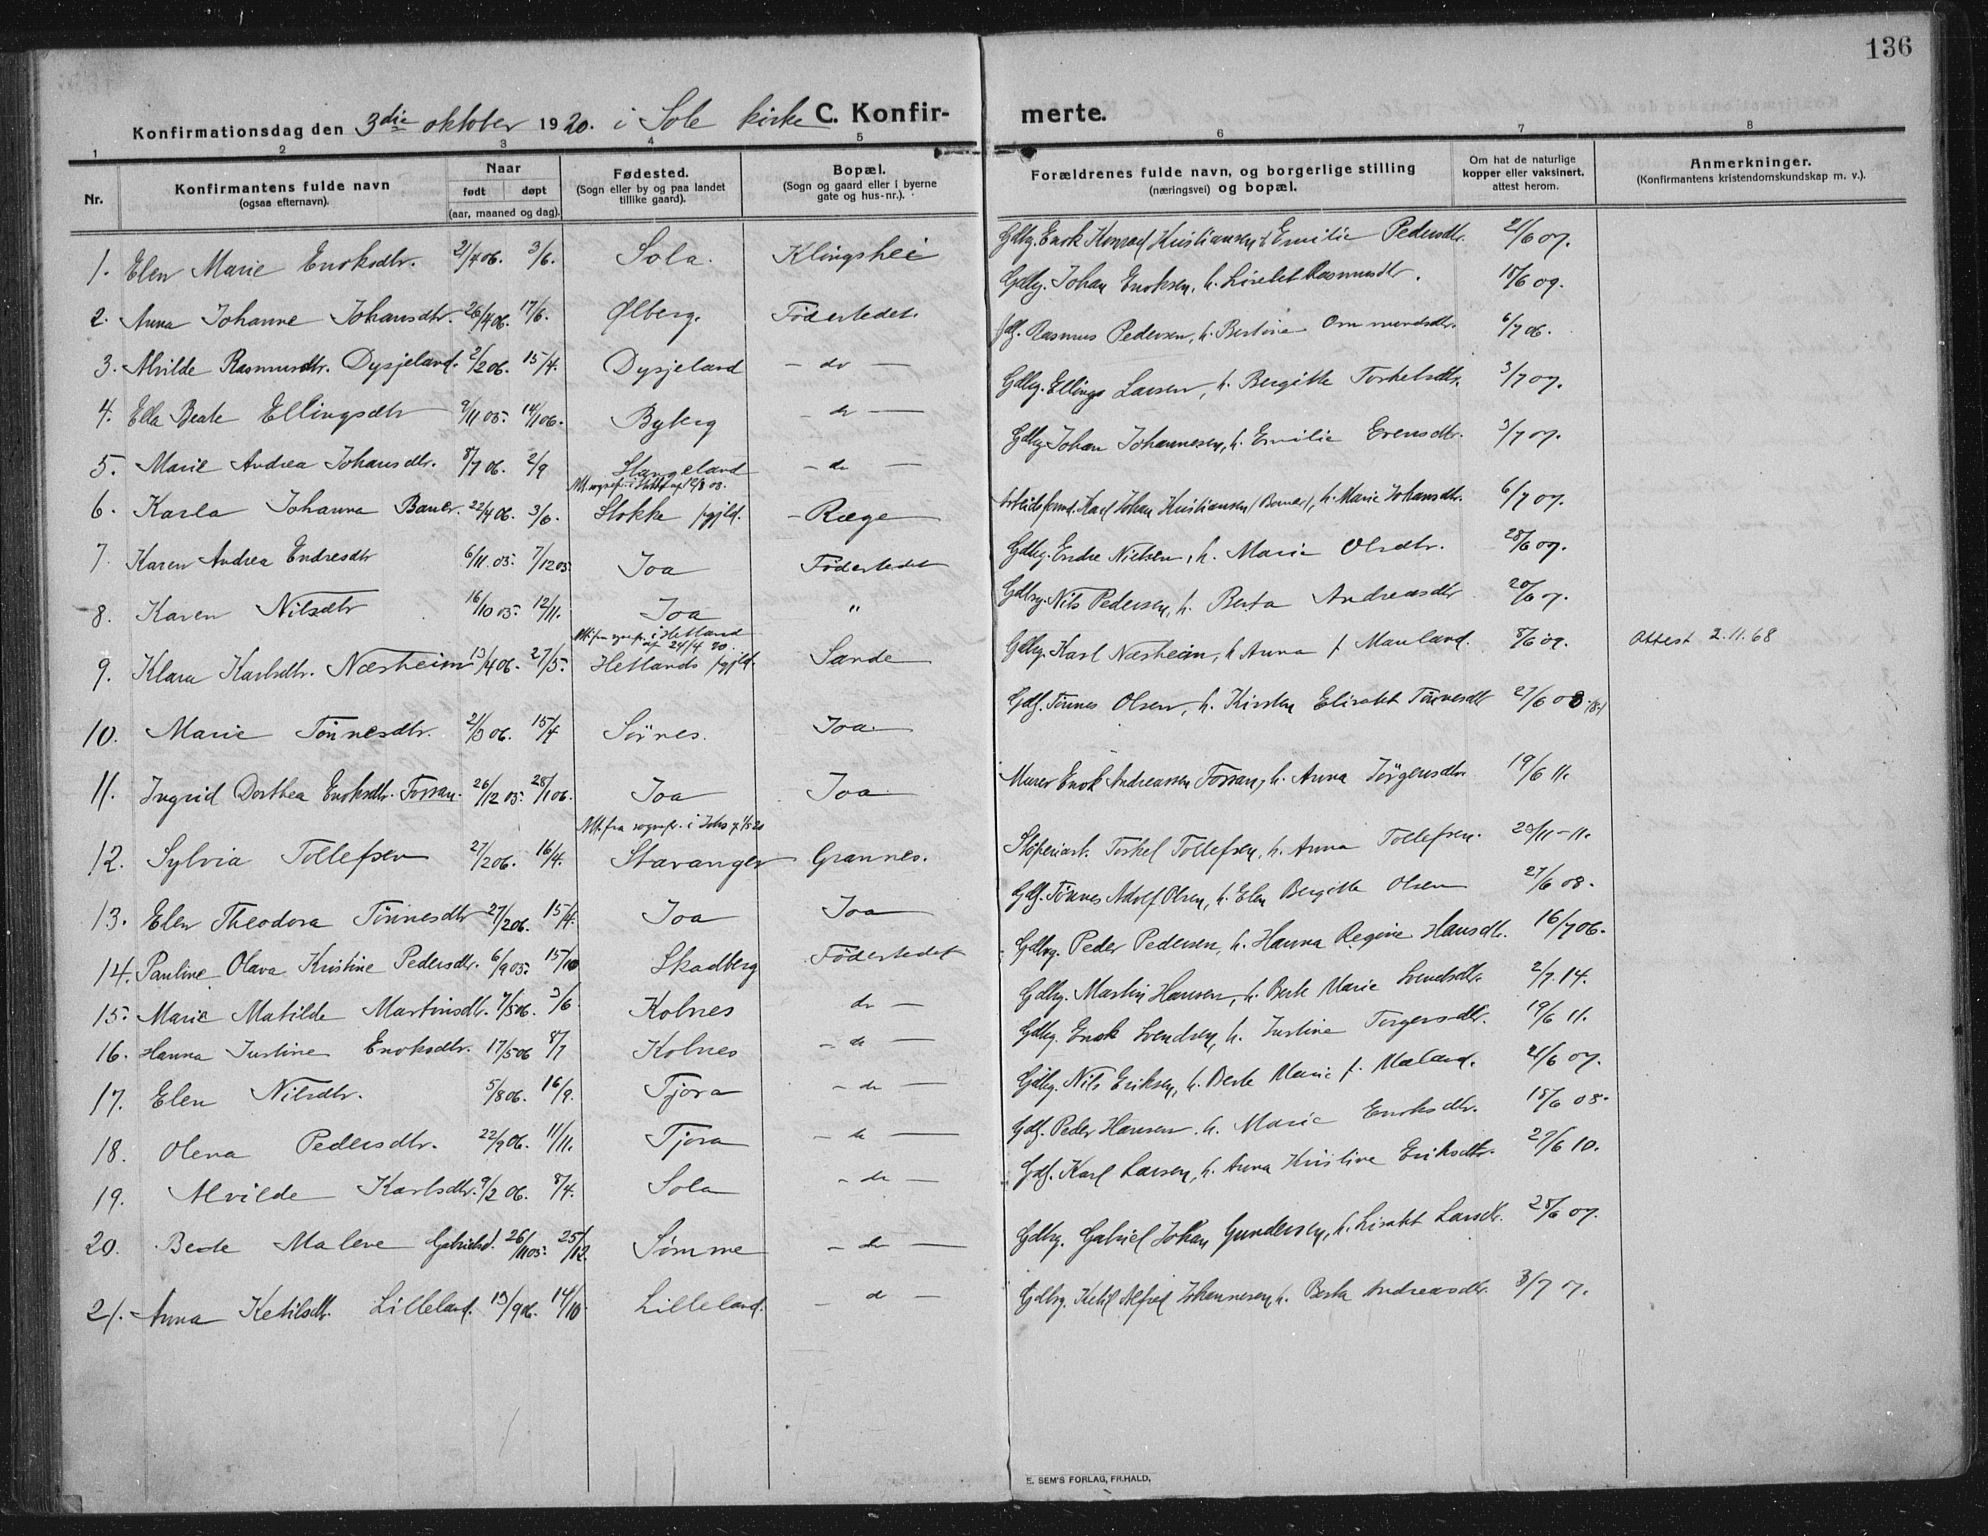 136
Konfirmationsdag den 3die oktober 1920. i Sole kirke C. Konfir- merte.
1 2 3 4 5 6 7 8
Nr. Konfirmantens fulde navn (ogsaa efternavn). Naar født døpt (aar, maaned og dag). Fødested. (Sogn eller by og paa landet tillike gaard). Bopæl. (Sogn og gaard eller i byerne gate og hus-nr.). Forældrenes fulde navn, og borgerlige stilling (næringsvei) og bopæl. Om hat de naturlige kopper eller vaksinert, attest herom. Anmerkninger. (Konfirmantens kristendomskundskap m. v.).
1. Elen Marie Enoksdtr. 21/4 06. 3/6. Sola. Klingshei Gdbg. Enok Konrad Kristiansen, h. Emilie Pedersdtr. 21/6 07.
2. Anna Johanne Johansdtr. 26/4 06. 17/6. Ølberg. Födestedet. Gdbg. Johan Enoksen, h. Lisebet Rasmusdtr. 18/6 09.
3. Alvilde Rasmusdtr. Dysjeland. 2/2 06. 15/4. Dysjeland - do - Gdf. Rasmus Pedersen, h. Bertine Ommundsdtr. 6/7 06.
4. Ella Beate Ellingsdtr 9/11 05. 14/1 06. Byberg - do - Gdbg. Ellings Larsen, h. Bergitte Torkelsdtr. 3/7 07.
5. Marie Andrea Johansdtr. 8/7 06. 2/9 Stangeland - do - Gdbg. Johan Johannesen, h. Emilie Evensdtr. 3/7 07.
6. Karla Johanna Bauer. 22/4 06. 3/6. Stokke pgjld. - Ræge Arbeidsformd. Karl Johan Kristiansen (Bauer), h. Marie Johansdtr. 6/7 07.
7. Karen Andrea Endresdtr 6/11 05. 7/12 05. Joa Födestedet Gdbg. Endre Nielsen, h. Marie Olsdtr. 28/6 07.
8. Karen Nilsdtr 16/10 05. 12/11. Joa " Gdbg. Nils Pedersen, h. Berta Andreasdtr 20/6 07.
Att. fra sognepr. i Hetland af 24/4 20.
9. Klara Karlsdtr. Næsheim 13/4 06. 27/5. Hetlands pgjld. Sande Gdbg. Karl Næsheim, h. Anna f. Mauland. 8/6 09. Attest 2.11.68
10. Marie Tönnesdtr. 21/3 06. 15/4 Sörnes. Joa Gdf. Tönnes Olsen, h. Kirsten Elisabet Tönnesdtr 27/6 08
11. Ingrid Dorthea Enoksdtr. Fossan. 26/12 05. 28/1 06. Joa Joa Murer Enok Andreassen Fossan, h. Anna Jörgensdtr 19/6 11.
12. Sylvia Tollefsen 27/2 06. 16/4. Stavanger Grannes. Stöperiarb. Torkel Tollefsen, h. Anna Tollefsen. 20/11-11.
13. Elen Theodora Tönnesdtr 27/2 06. 15/4. Joa Joa Gdf. Tönnes Adolf Olsen, h. Elen Bergitte Olsen 27/6 08.
14. Pauline Olava Kristine Pedersdtr. 6/9 05. 15/10 Skadberg Födestedet Gdbg. Peder Pedersen, h. Hanna Regine Hansdtr. 16/7 06.
15. Marie Matilde Martinsdtr. 7/5 06. 3/6. Kolnes do - Gdbg. Martin Hansen, h. Berte Marie Svendsdtr. 2/7. 14.
16. Hanna Justine Enoksdtr. 17/5 06 8/7 Kolnes - do - Gdbg. Enok Svendsen, h. Justine Torgersdtr. 19/6 11.
17. Elen Nilsdtr. 5/8 06. 16/9. Tjora - do - Gdbg. Nils Eriksen, h. Berte Marie f. Maland. 21/6 07.
18. Olena Pedersdtr. 22/9 06. 11/11. Tjora - do - Gdf. Peder Hansen h. Marie Enoksdtr. 18/6 08.
19. Alvilde Karlsdtr. 9/2 06. 8/4. Sola - do - Gdf. Karl Larsen, h. Anna Kristine Eriksdtr. 29/6 10.
20. Berte Malene Gabrielsd. 26/11 05. 25/12 Sömme - do - Gdbg. Gabriel Johan Gundersen, h. Lisabet Larsdtr. 28/6 07.
21. Anna Ketilsdtr. Lilleland. 13/9 06. 14/10. Lilleland. - do - Gdbg. Ketil Alfred Johannesen, h. Berta Andreasdtr. 3/7 07.
E. SEM'S FORLAG, FR.HALD,